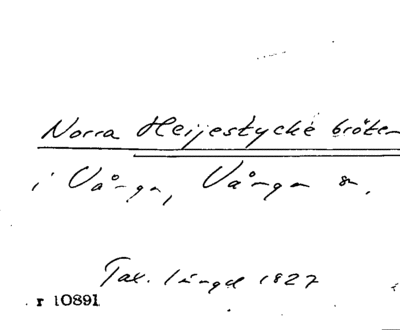 Norra Heijestycke bråten
i Vånga, Vånga sn.
Tax. längd 1827
r 10891